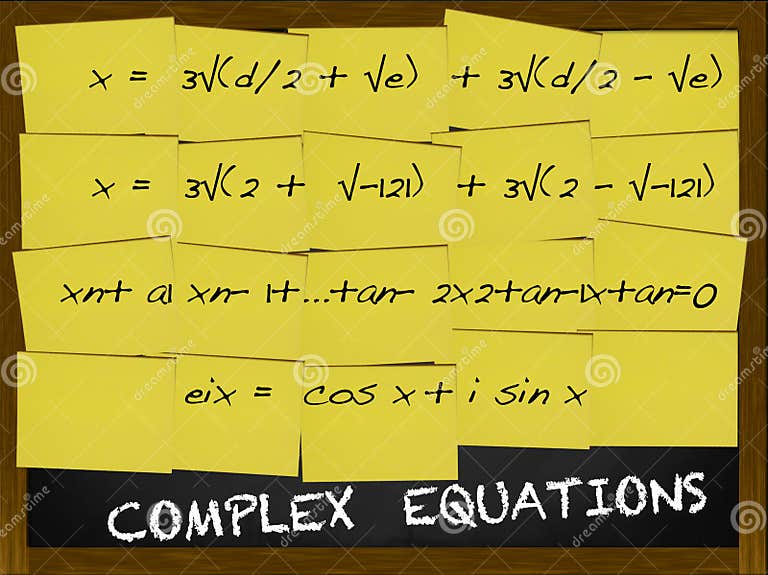 x = 3√(d/2 + √e) + 3√(d/2 - √e)
x = 3√(2 + √-121) + 3√(2 - √-121)
xn+ a1 xn- 1+...+an- 2x2+an-1x+an=0
eix = cos x + i sin x
COMPLEX EQUATIONS
dreamstime